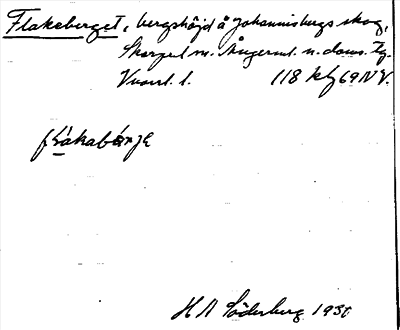 Flakeberget, bergshöjd å Johannisbergs skog,
Skorped sn. Ångerml. n. doms. tg.
Vuorl. l. 118 kbl 69 NV.
flákabǽrje
H N Söderberg 1930